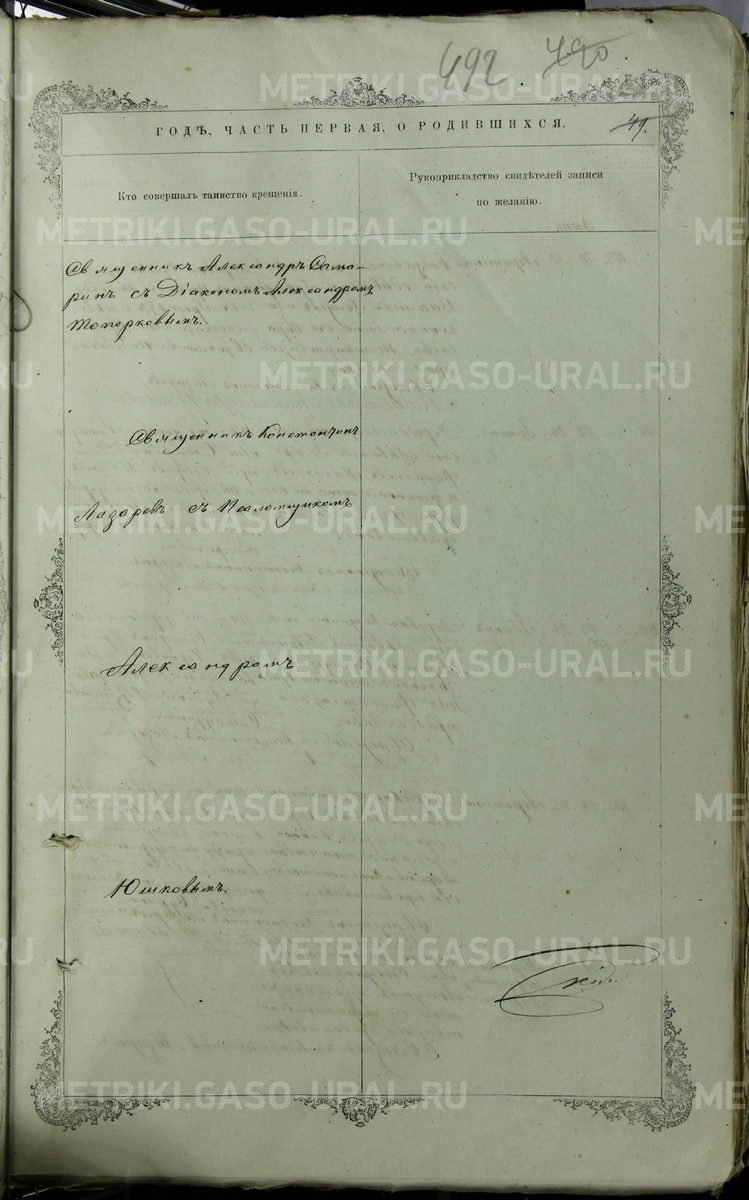 492 490
ГОДЪ, ЧАСТЬ ПЕРВАЯ, О РОДИВШИХСЯ.
49.
Кто совершалъ таинство крещенія.
Рукоприкладство свидѣтелей записи
по желанію.
Священникъ Александръ Сама-
ринъ съ Діакономъ Александромъ
Топорковымъ.
Священникъ Константинъ
Лазаревъ съ Псаломщикомъ
Александромъ
Юшковымъ.
METRIKI.GASO-URAL.RU